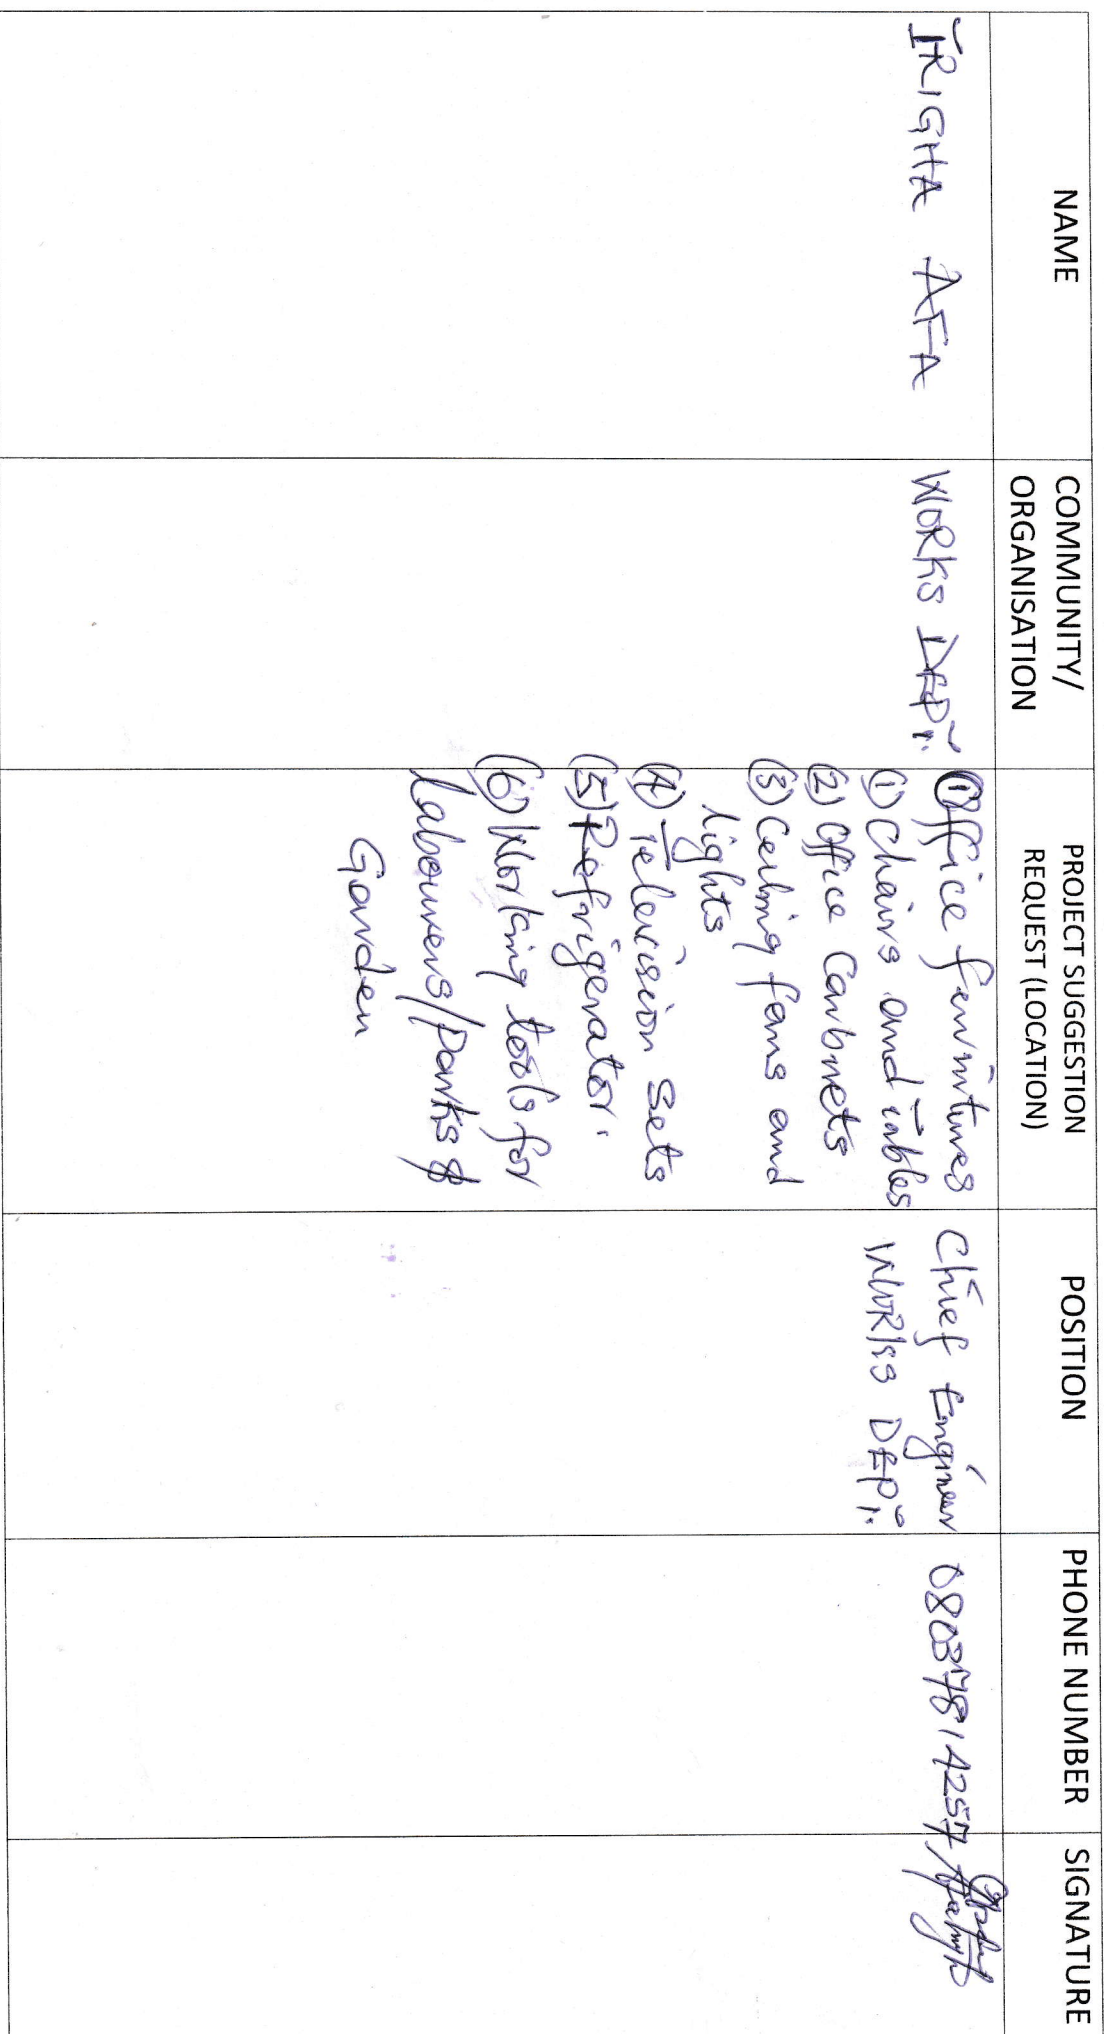 NAME
COMMUNITY/
ORGANISATION
PROJECT SUGGESTION
REQUEST (LOCATION)
POSITION
PHONE NUMBER
SIGNATURE
IRIGHA AFA
WORKS DEPT.
Office furnitures
(1) Chairs and Tables
(2) Office Carbnets
(3) Ceiling fans and
lights
(4) Television Sets
(5) Refrigerator.
(6) Working tools for
labourers/Parks &
Garden
Chief Engineer
WORKS DEPT.
08037814257